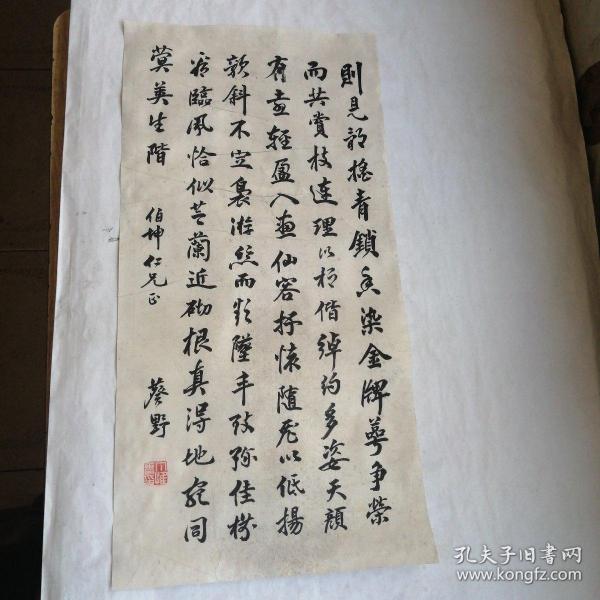 則見韵搖青鎖香染金牌萼爭榮
而共賞枝連理以相偕綽約多姿天顏
有喜輕盈入畫仙容抒懷随風以低揚
欹斜不定裊游絲而欲墜丰致彌佳
臨風恰似芝蘭近砌根真得地宛同
蓂莢生階
伯坤仁兄正
蔡野
孔夫子旧書网
www.kongfz.com